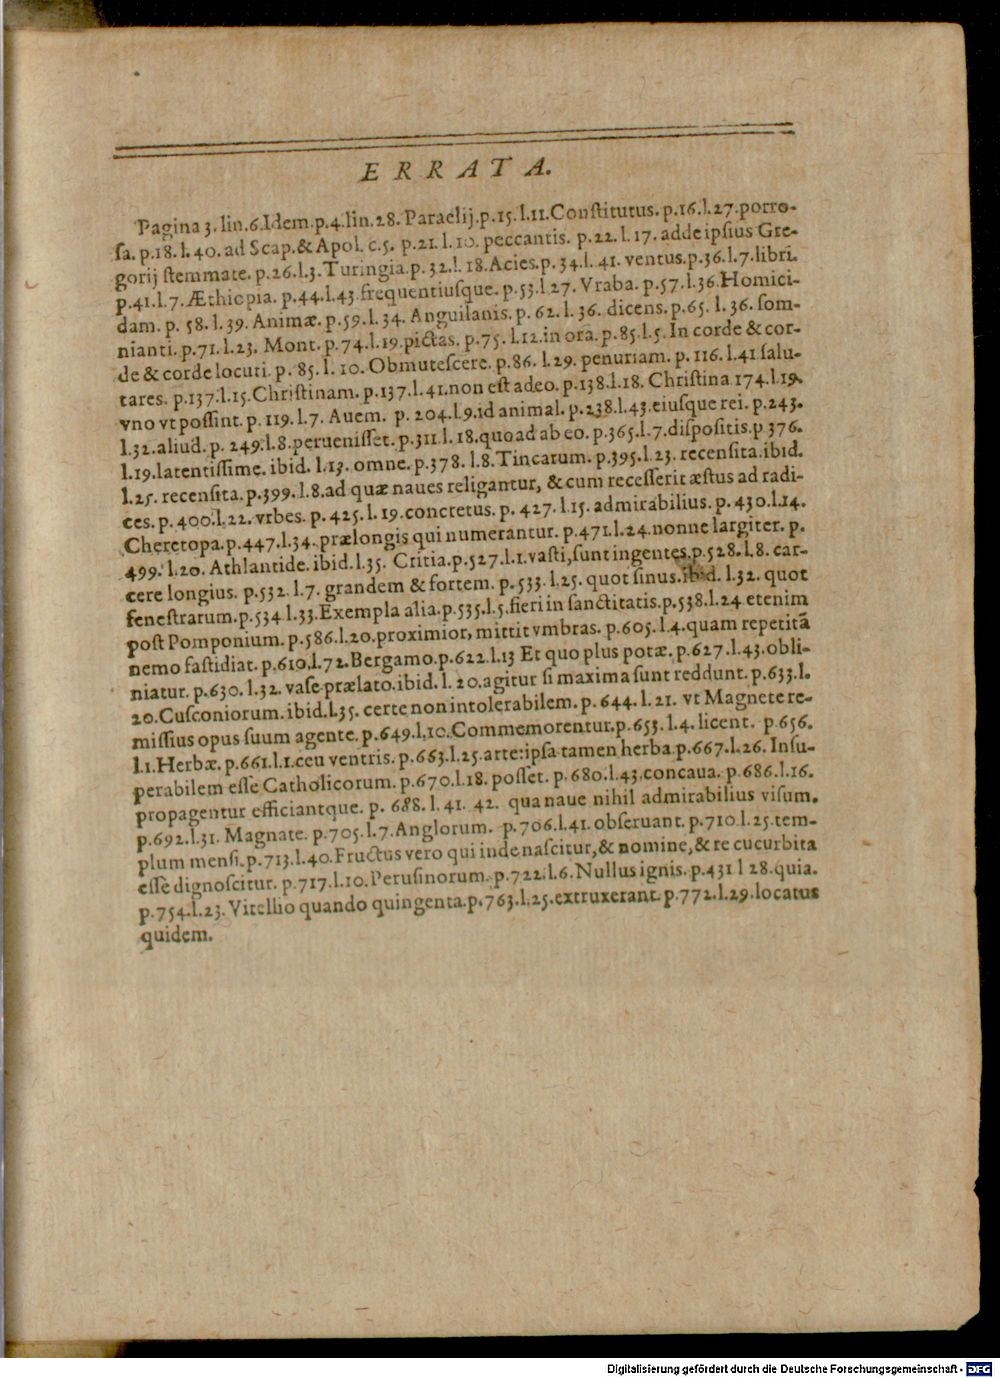 ERRATA.
Pagina 3. lin. 6. Idem. p. 4. lin. 28. Paraelij. p. 15. l. 11. Constitutus. p. 16. l. 27. porro-
sa. p. 18. l. 40. ad Scap. & Apol. c. 5. p. 21. l. 10. peccantis. p. 22. l. 17. adde ipsius Gre-
gorij stemmate. p. 26. l. 3. Turingia. p. 32. l. 18. Acies. p. 34. l. 41. ventus. p. 36. l. 7. libri.
p. 41. l. 7. Æthiopia. p. 44. l. 43. frequentiusque. p. 53. l. 27. Vraba. p. 57. l. 36. Homici-
dam. p. 58. l. 39. Animæ. p. 59. l. 34. Anguilanis. p. 62. l. 36. dicens. p. 65. l. 36. som-
nianti. p. 71. l. 23. Mont. p. 74. l. 19. pictas. p. 75. l. 12. in ora. p. 85. l. 5. In corde & cor-
de & corde locuti. p. 85. l. 10. Obmutescere. p. 86. l. 29. penuriam. p. 116. l. 41 salu-
tares. p. 137. l. 15. Christinam. p. 137. l. 41. non est adeo. p. 138. l. 18. Christina 174. l. 19.
vno vt possint. p. 119. l. 7. Auem. p. 204. l. 9. id animal. p. 238. l. 43. eiusque rei. p. 243.
l. 32. aliud. p. 249. l. 8. peruenisset. p. 311. l. 18. quoad ab eo. p. 365. l. 7. dispositis. p 376.
l. 19. latentissime. ibid. l. 13. omne. p. 378. l. 8. Tincarum. p. 395. l. 23. recensita. ibid.
l. 25. recensita. p. 399. l. 8. ad quæ naues religantur, & cum recesserit æstus ad radi-
ces. p. 400. l. 22. vrbes. p. 425. l. 19. concretus. p. 427. l. 15. admirabilius. p. 430. l. 14.
Cheretopa. p. 447. l. 34. prælongis qui numerantur. p. 471. l. 24. nonne largiter. p.
499. l. 20. Athlantide. ibid. l. 35. Critia. p. 527. l. 1. vasti, sunt ingentes. p. 528. l. 8. car-
cere longius. p. 532. l. 7. grandem & fortem. p. 533. l. 25. quot sinus. ibid. l. 32. quot
fenestrarum. p. 534 l. 33. Exempla alia. p. 535. l. 5. fieri in sanctitatis. p. 538. l. 24. etenim
post Pomponium. p. 586. l. 20. proximior, mittit vmbras. p. 605. l. 4. quam repetitã
nemo fastidiat. p. 610. l. 72. Bergamo. p. 622. l. 13 Et quo plus potæ. p. 627. l. 43. obli-
niatur. p. 630. l. 32. vase prælato. ibid. l. 20. agitur si maxima sunt reddunt. p. 633. l.
20. Cusconiorum. ibid. l. 35. certe non intolerabilem. p. 644. l. 21. vt Magnete re-
missius opus suum agente. p. 649. l. 10. Commemorentur. p. 653. l. 4. licent. p. 656.
l. 1. Herbæ. p. 661. l. 1. ceu ventris. p. 663. l. 25. arte: ipsa tamen herba. p. 667. l. 26. Insu-
perabilem esse Catholicorum. p. 670. l. 18. posset. p. 680. l. 43. concaua. p. 686. l. 16.
propagentur efficiantque. p. 688. l. 41. 42. qua naue nihil admirabilius visum.
p. 692. l. 31. Magnate. p. 705. l. 7. Anglorum. p. 706. l. 41. obseruant. p. 710 l. 25. tem-
plum mensi. p. 713. l. 40. Fructus vero qui inde nascitur, & nomine, & re cucurbita
esse dignoscitur. p. 717. l. 10. Perusinorum. p. 722. l. 6. Nullus ignis. p. 431 l 28. quia.
p. 754. l. 23. Vitellio quando quingenta. p. 763. l. 25. extruxerant. p. 772. l. 29. locatus
quidem.
Digitalisierung gefördert durch die Deutsche Forschungsgemeinschaft - DFG